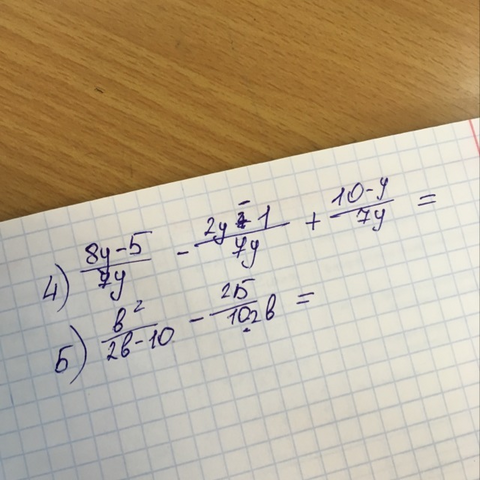 4) (8y-5)/(7y) - (2y-1)/(7y) + (10-y)/(7y) =
5) в²/(2в-10) - 25/(10-2в) =